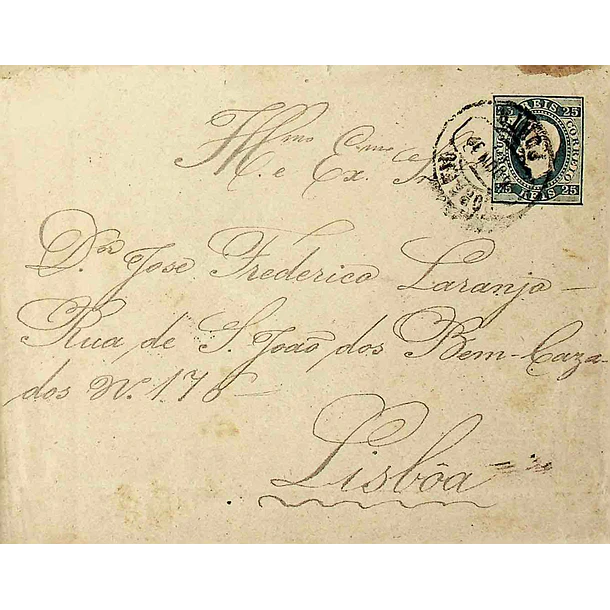 Illmo e Exmo Sr
Dor José Frederico Laranjo
Rua de S. João dos Bem-Caza-
dos No. 176
Lisbôa
25 REIS 25
PORTUGAL CORREIO
25 REIS 25